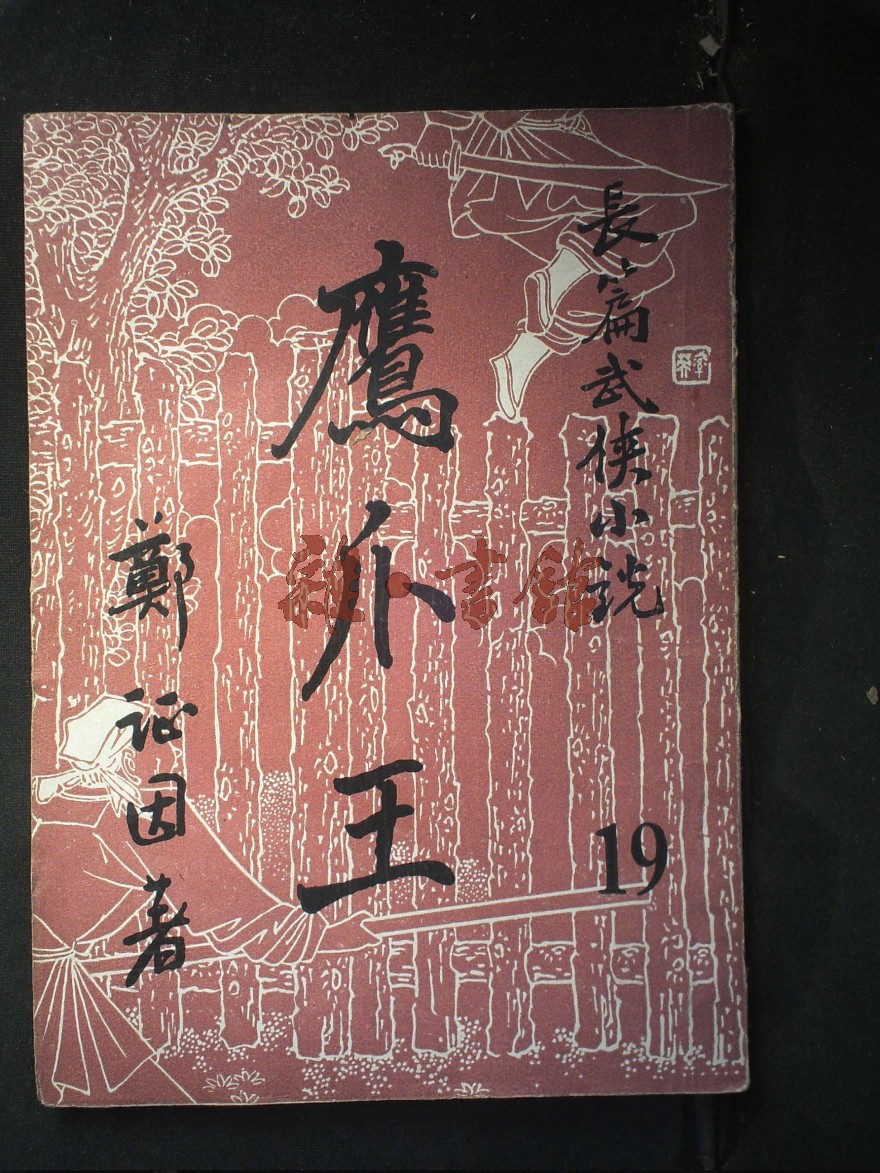 長篇武俠小説
鷹爪王
19
鄭証因著
雜·書館